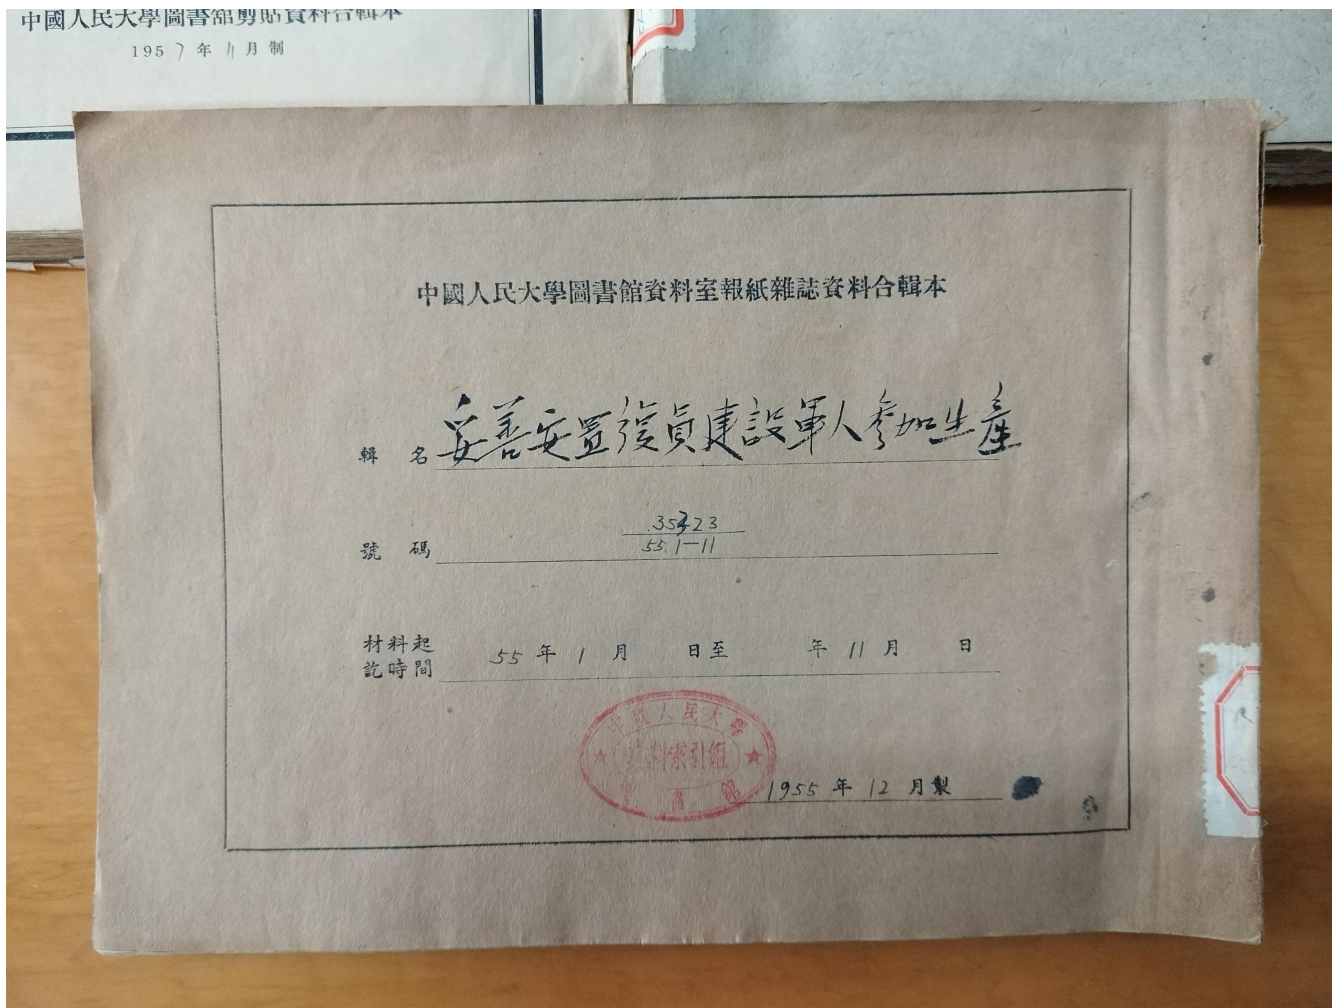 中國人民大學圖書館剪貼資料合輯本
1957年11月制
中國人民大學圖書館資料室報紙雜誌資料合輯本
輯名 妥善安置復員建設軍人參加生產
號碼 35323
55.1-11
材料起
訖時間 55年1月 日至 年11月 日
中國人民大學
資料索引組
圖書館
1955年12月製